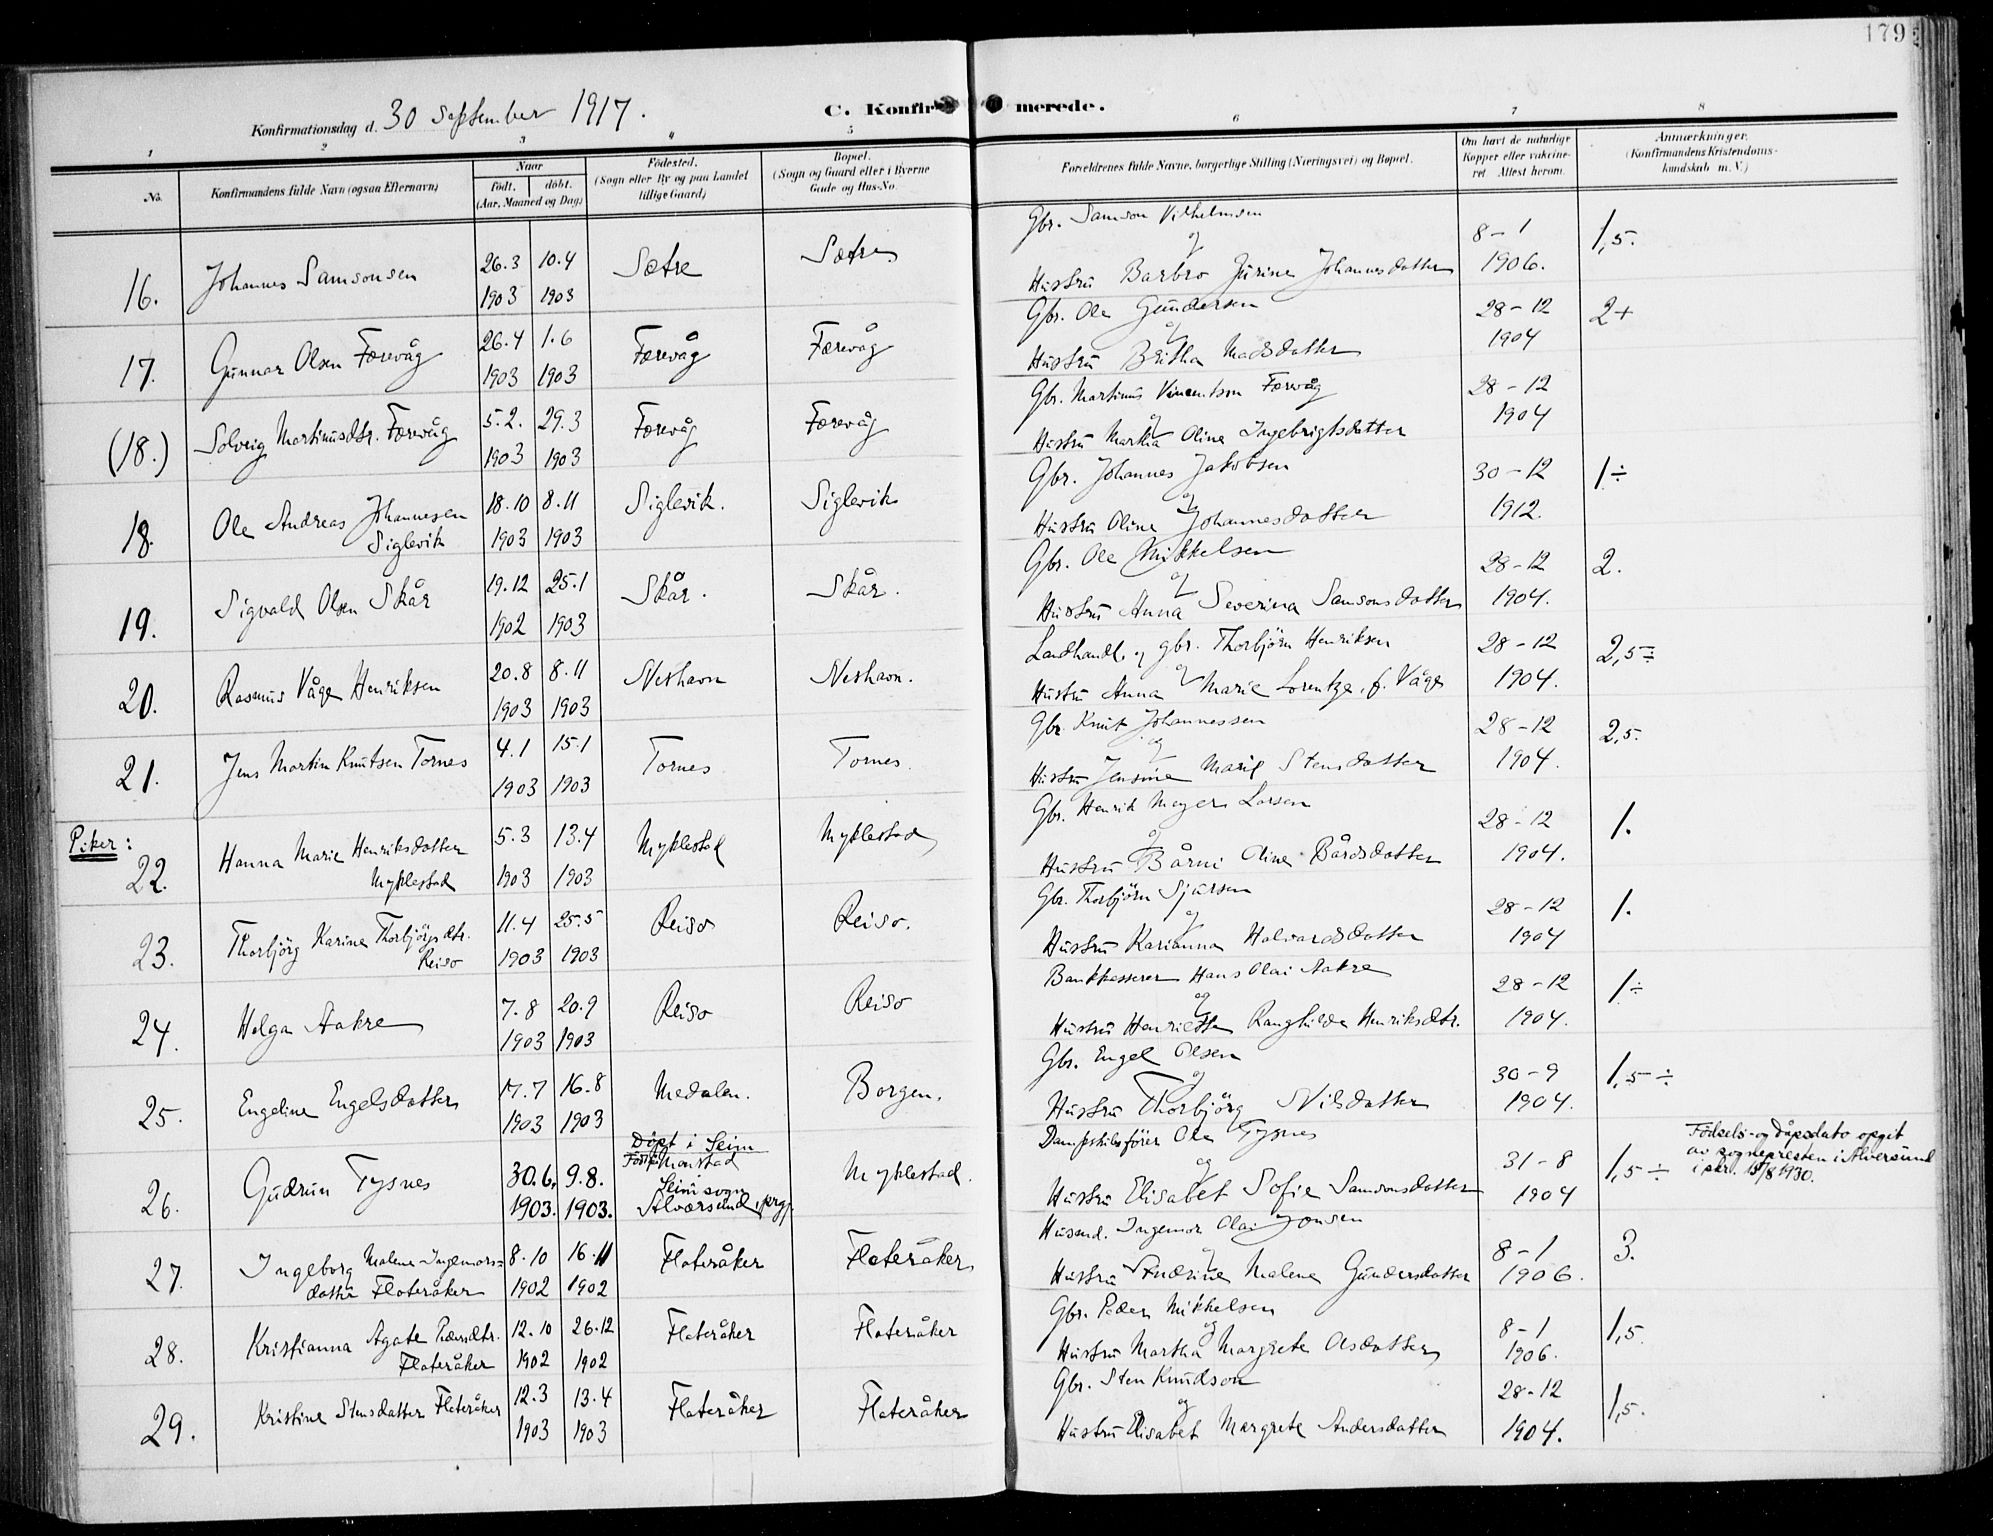 179
Konfirmationsdag d. 30 september 1917.
C. Konfirmerede.
1 2 3 4 5 6 7 8
No. Konfirmandens fulde Navn (ogsaa Efternavn)
Naar
født. døbt.
(Aar, Maaned og Dag)
Fødested.
(Sogn eller By og paa Landet
tillige Gaard)
Bopæl.
(Sogn og Gaard eller i Byerne
Gade og Hus-No.
Forældrenes fulde Navne, borgerlige Stilling (Næringsvei) og Bopæl.
Om havt de naturlige
Kopper eller vakcine-
ret Attest herom.
Anmærkninger.
(Konfirmandens Kristendoms-
kundskab m. V.)
16. Johannes Samsonsen 26.3 1903 10.4 1903 Sætre Sætre
Gbr. Samson Vilhelmsen
og
Hustru Barbro Jurine Johannesdatter
8-1 1906. 1,5.
17. Gunnar Olsen Færevåg 26.4 1903 1.6 1903 Færevåg Færevåg
Gbr. Ole Gundersen
og
Hustru Britha Madsdatter
28-12 1904 2+
(18.) Solveig Martinusdtr. Færevåg 5.2. 1903 29.3 1903 Færevåg Færevåg
Gbr. Martinus Vincentsen Færevåg
og
Hustru Martha Oline Ingebrigtsdatter
28-12 1904
18. Ole Andreas Johannesen
Siglevik 18.10 1903 8.11 1903 Siglevik. Siglevik
Gbr. Johannes Jakobsen
og
Hustru Oline Johannesdatter
30-12 1912. 1÷
19. Sigvald Olsen Skår 19.12 1902 25.1 1903 Skår. Skår.
Gbr. Ole Mikkelsen
og
Hustru Anna Severina Samsonsdatter
28-12 1904. 2.
20. Rasmus Våge Henriksen 20.8 1903 8.11 1903 Neshavn Neshavn.
Landhandl. og gbr. Thorbjørn Henriksen
og
Hustru Anna Marie Lorentze, f. Våge
28-12 1904. 2,5÷
21. Jens Martin Knutsen Tornes 4.1 1903 15.1 1903 Tornes Tornes.
Gbr. Knut Johannessen
og
Hustru Jensine Marie Stensdatter
28-12 1904. 2,5.
Piker:
22. Hanna Marie Henriksdatter
Myklestad 5.3 1903 13.4 1903 Myklestad Myklestad
Gbr. Henrik Meyer Larsen
og
Hustru Bårni Oline Bårdsdatter
28-12 1904. 1.
23. Thorbjörg Karine Thorbjörnsdtr.
Reiso 11.4 1903 25.5 1903 Reiso Reiso.
Gbr. Thorbjörn Sjursen
og
Hustru Karianna Halvardsdatter
28-12 1904 1.
24. Helga Aakre 7.8 1903 20.9 1903 Reiso Reiso
Bankkasserer Hans Olai Aakre
og
Hustru Henriette Ranghilda Henriksdtr.
28-12 1904. 1÷
25. Engeline Engelsdatter 17.7 1903 16.8 1903 Medalen. Borgen.
Gbr. Engel Olsen
og
Hustru Thorbjörg Nilsdatter
30-9 1904. 1,5÷
26. Gudrun Tysnes 30.6. 1903. 9.8. 1903.
Döpt i Seim
Född Monstad
Seim sogn
Alversund prgj. Myklestad.
Dampskibsförer Ole Tysnes
og
Hustru Elisabet Sofie Samsonsdatter
31-8 1904 1,5÷
Födsels- og dåpsdato opgit
av sognepresten i Alversund
i skr. 15/8 1930.
27. Ingeborg Malene Ingemars-
datter Flateråker 8.10 1902 16.11 1902 Flateråker Flateråker
Husmd. Ingemar Olai Jonsen
og
Hustru Andrine Malene Gundersdatter
8-1 1906. 3.
28. Kristianna Agate Pedersdtr.
Flateråker 12.10 1902 26.12 1902 Flateråker Flateråker
Gbr. Peder Mikkelsen
og
Hustru Martha Margrete Olsdatter
8-1 1906. 1,5.
29. Kristine Stensdatter Flateråker 12.3 1903 13.4 1903 Flateråker Flateråker
Gbr. Sten Knudson
og
Hustru Elisabet Margrete Andersdatter
28-12 1904. 1,5.